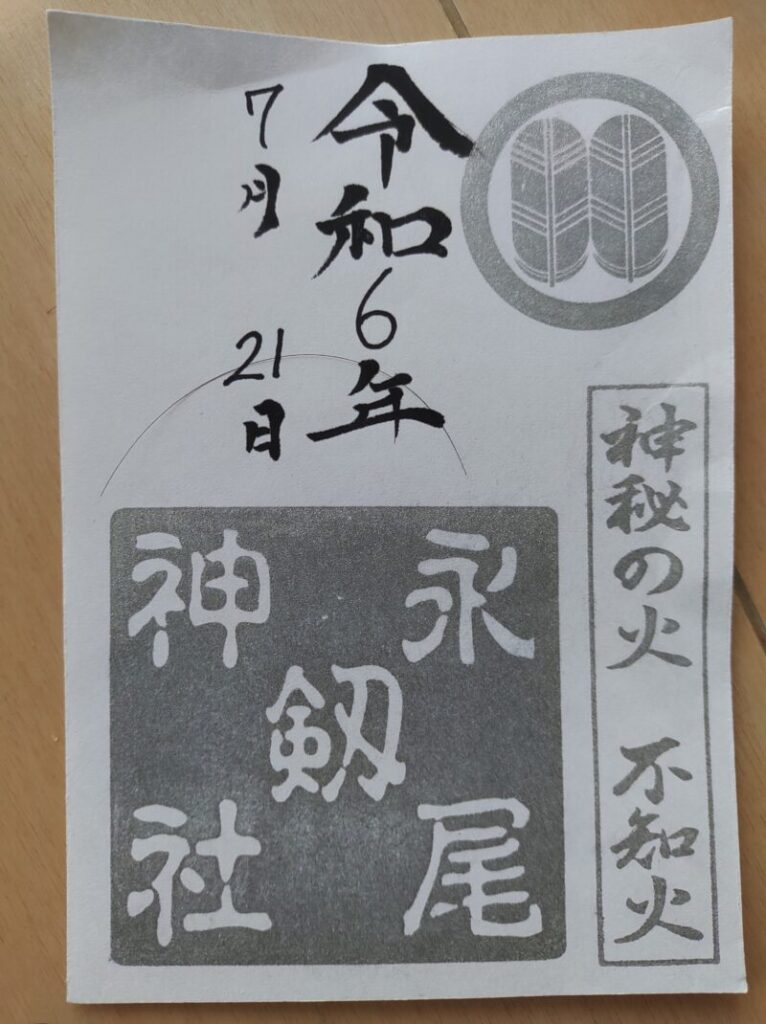 神秘の火 不知火
令和6年
7月21日
永尾
剱
神社